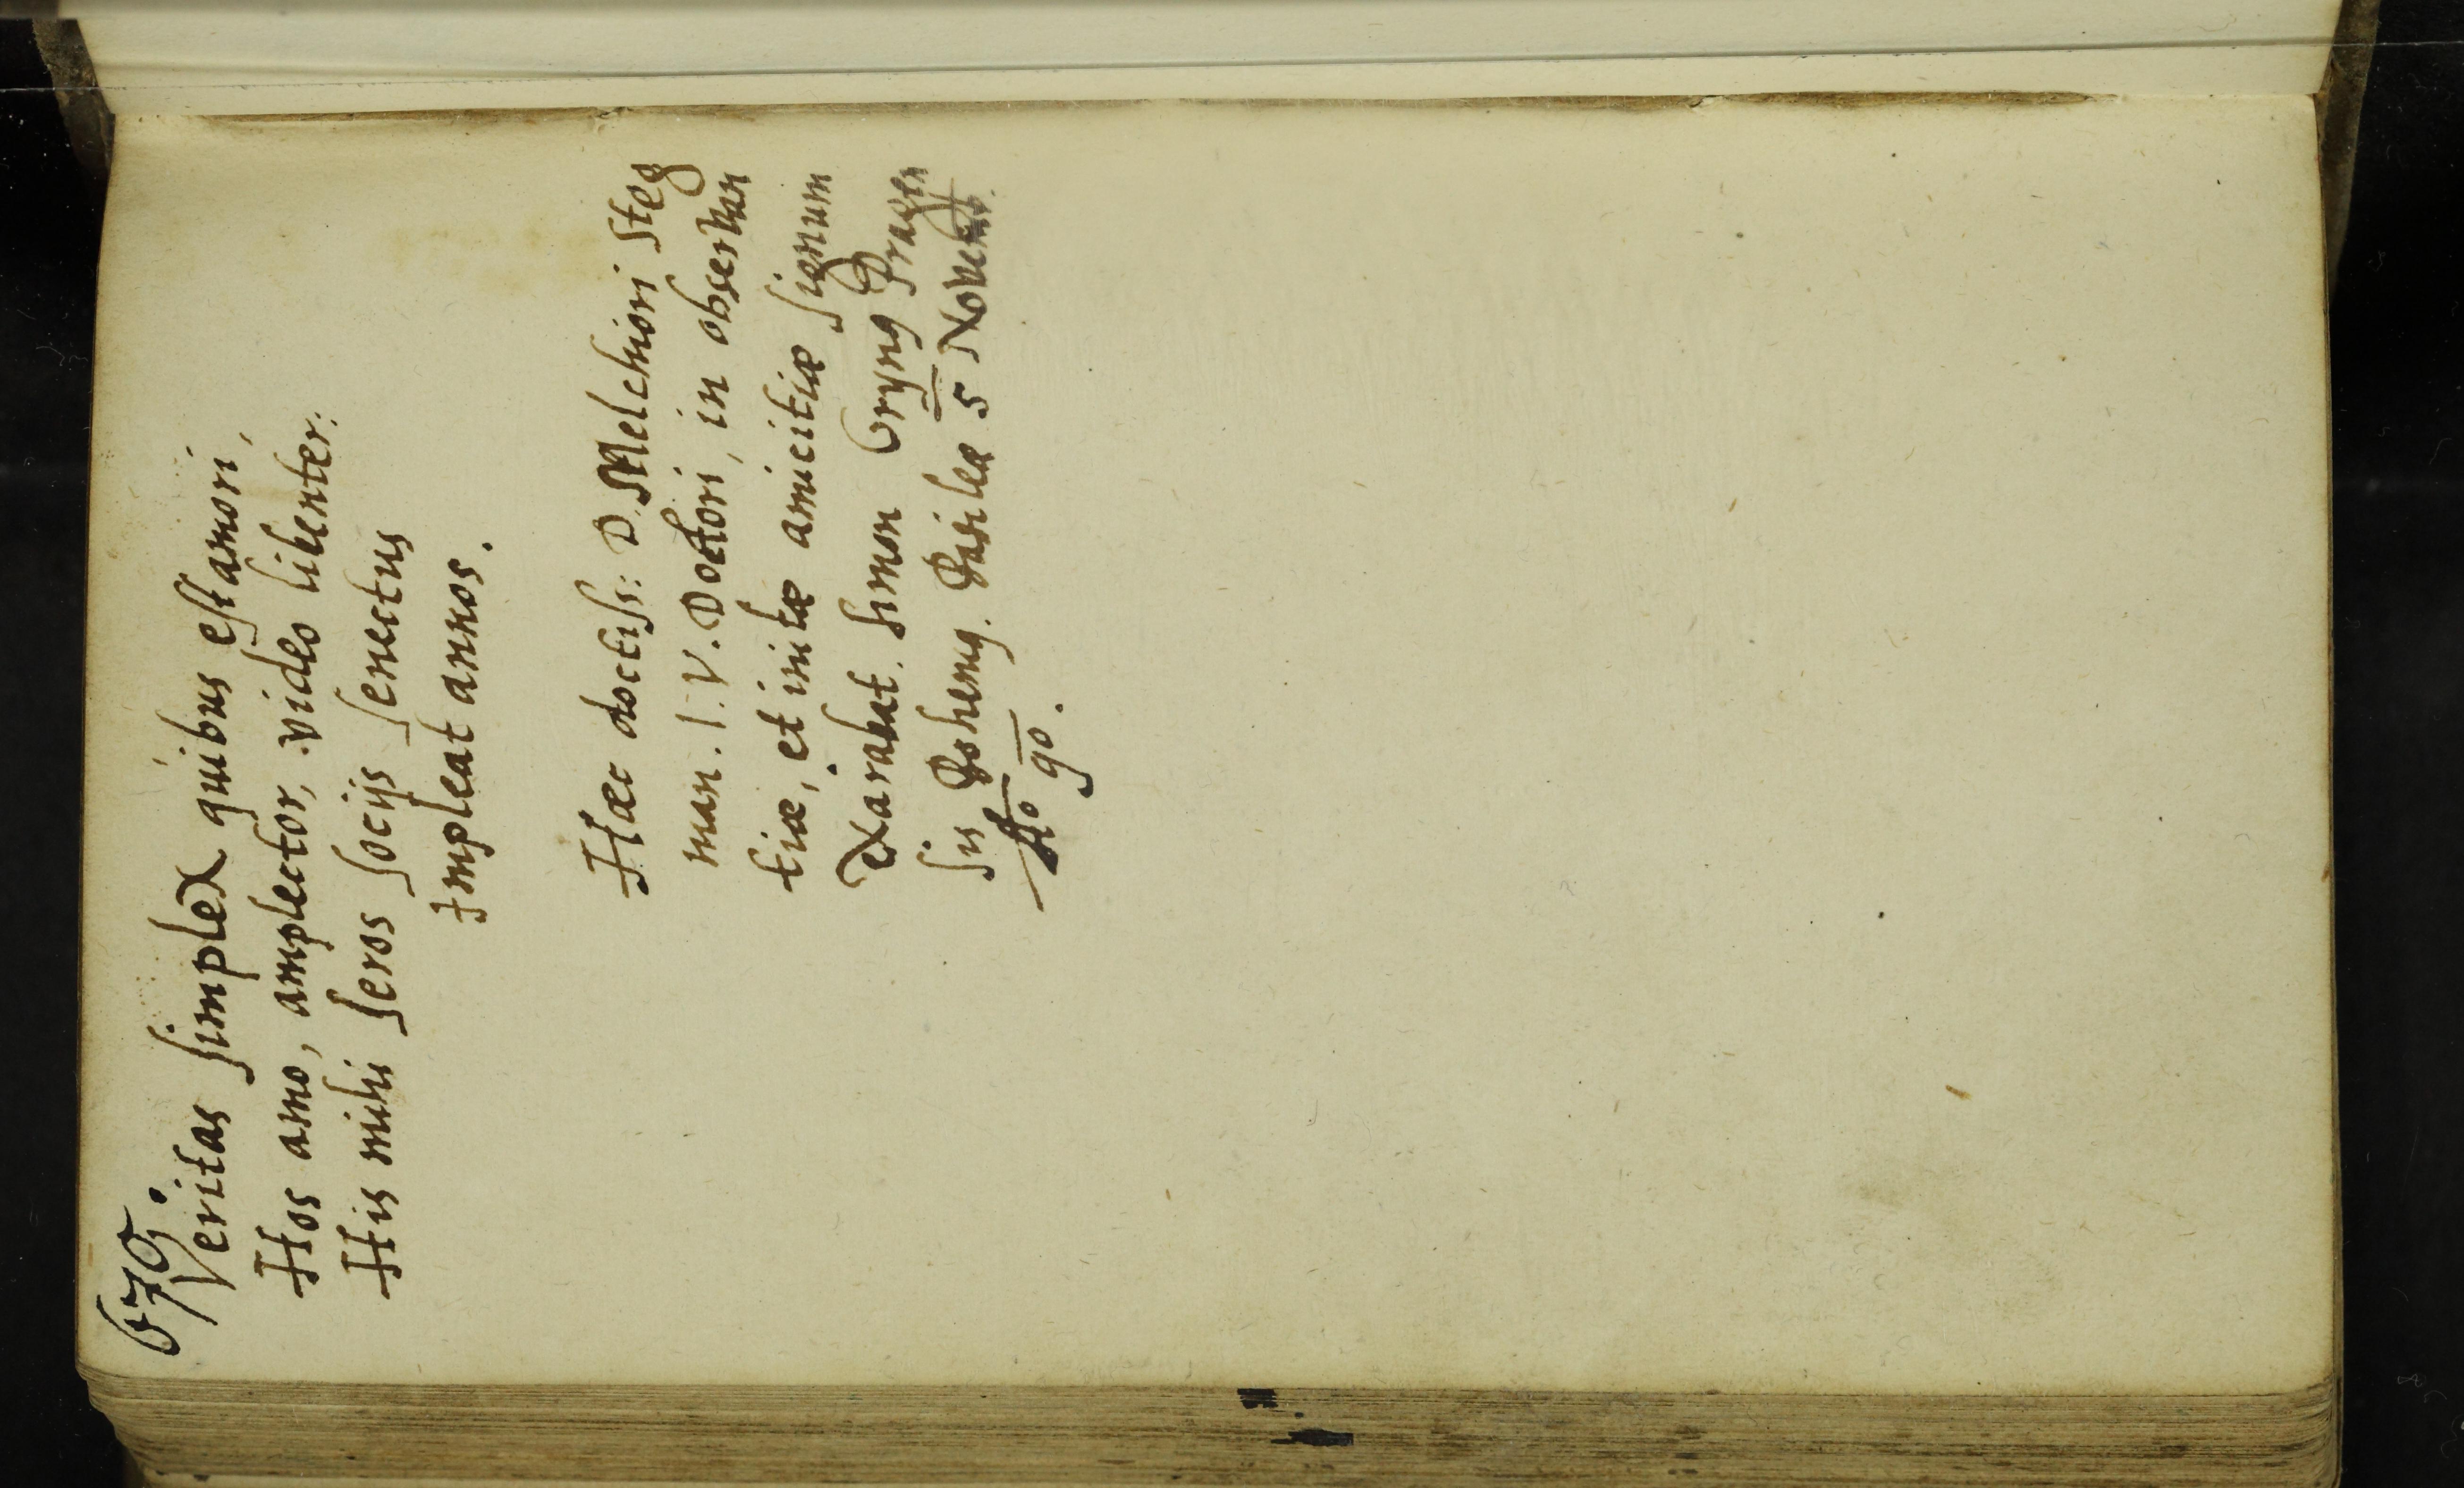 670.
Veritas simplex quibus est amori,
Hos amo, amplector, video libenter:
His mihi seros socijs senectus
Impleat annos.
Hæc doctiss: D. Melchiori Steg
man. I. V. Doctori, in observan
tiæ, et initæ amicitiæ signum
exarabat. Simon Gryng Pragen
sis Bohemg. Basileæ 5 Novemb.
Ao 90.